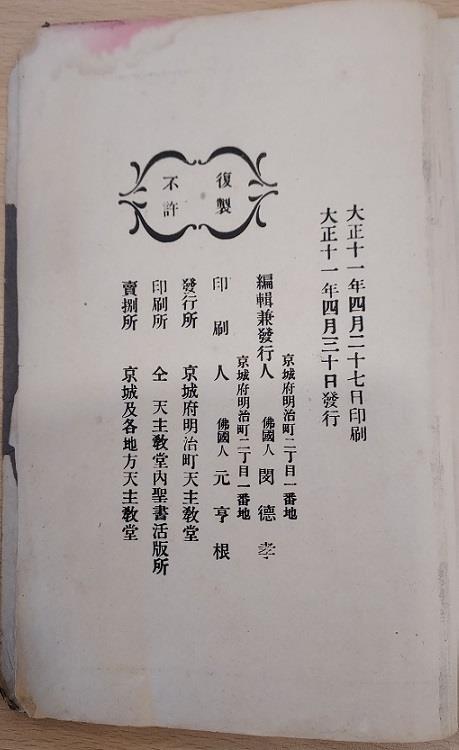 大正十一年四月二十七日印刷
大正十一年四月三十日發行
京城府明治町二丁目一番地
編輯兼發行人 佛國人 閔德孝
京城府明治町二丁目一番地
印刷人 佛國人 元亨根
發行所 京城府明治町天主敎堂
印刷所 仝 天主敎堂內聖書活版所
賣捌所 京城及各地方天主敎堂
復製
不許